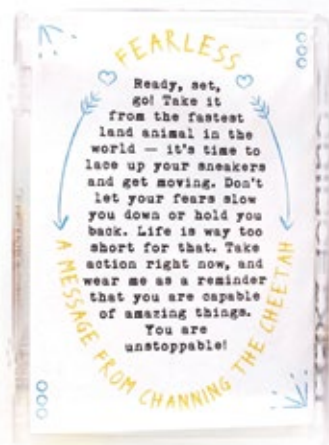 FEARLESS
Ready, set,
go! Take it
from the fastest
land animal in the
world — it's time to
lace up your sneakers
and get moving. Don't
let your fears slow
you down or hold you
back. Life is way too
short for that. Take
action right now, and
wear me as a reminder
that you are capable
of amazing things.
You are
unstoppable!
A MESSAGE FROM CHANNING THE CHEETAH